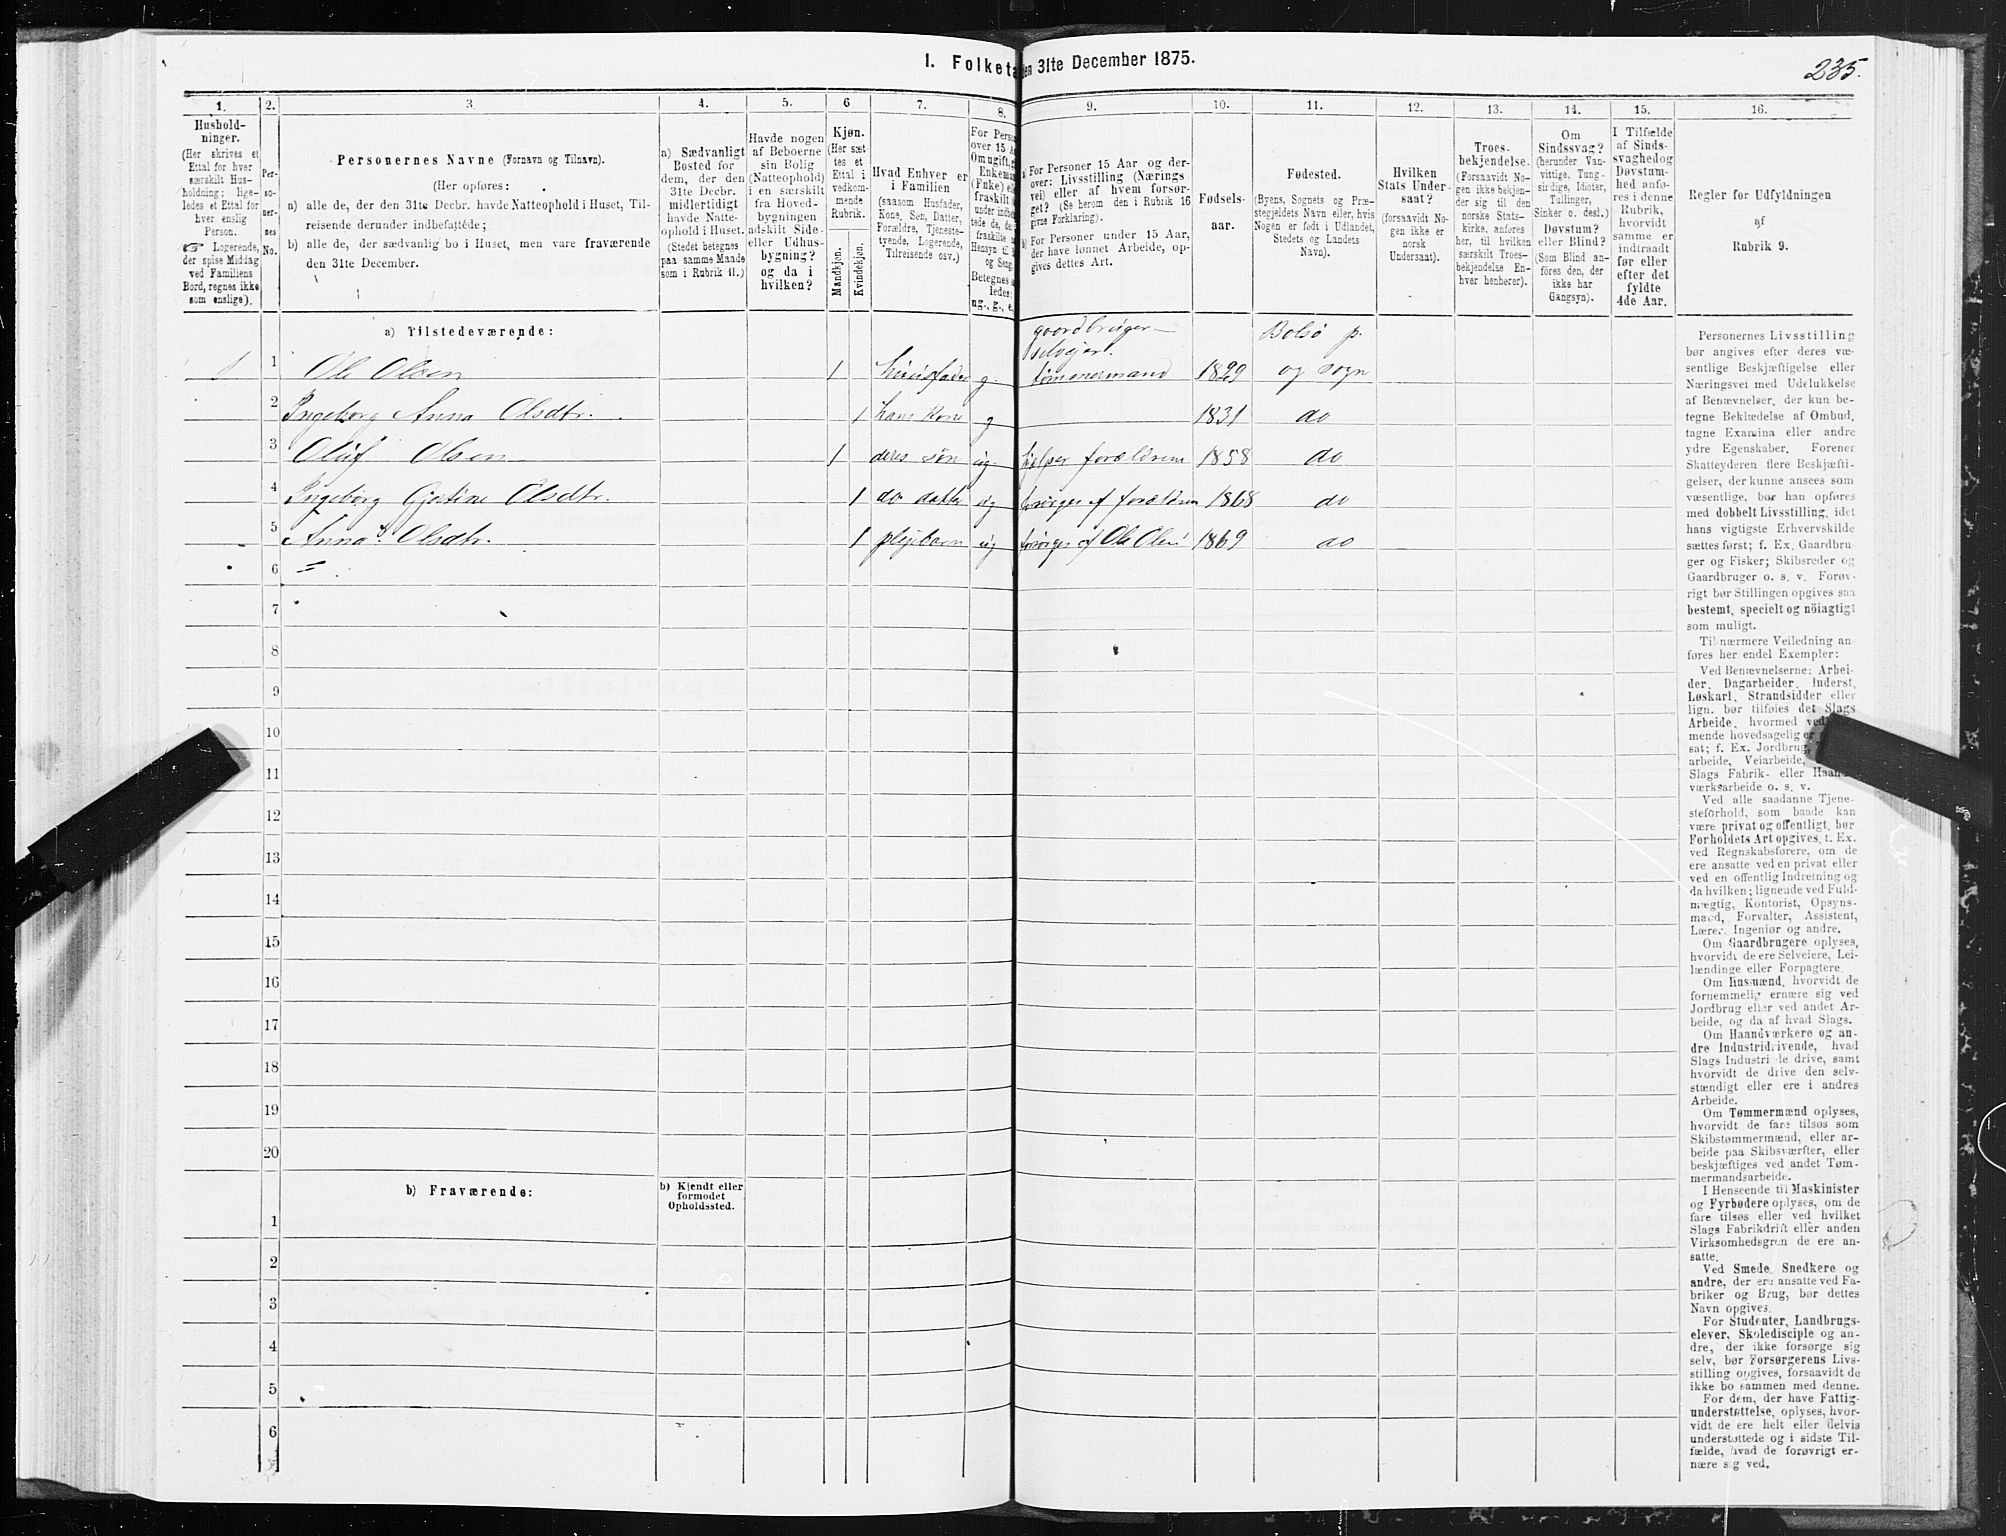 I. Folketa en 31te December 1875.
235.
1. 2. 3. 4. 5. 6 7. 8. 9. 10. 11. 12. 13. 14. 15. 16.
Hushold-
ninger.
(Her skrives et
Ettal for hver
særskilt Hus-
holdning; lige-
ledes et Ettal for
hver enslig
Person.
☞ Logerende,
der spise Middag
ved Familiens
Bord, regnes ikke
som enslige).
Per-
so-
ner-
nes
No.
Personernes Navne (Fornavn og Tilnavn).
(Her opføres:
a) alle de, der den 31te Decbr. havde Natteophold i Huset, Til-
reisende derunder indbefattede;
b) alle de, der sædvanlig bo i Huset, men vare fraværende
den 31te December.
a) Sædvanligt
Bosted for
dem, der den
31te Decbr.
midlertidigt
havde Natte-
ophold i Huset.
(Stedet betegnes
paa samme Maade
som i Rubrik 11.)
Havde nogen
af Beboerne
sin Bolig
(Natteophold)
i en særskilt
fra Hoved-
bygningen
adskilt Side-
eller Udhus-
bygning?
og da i
hvilken?
Kjøn.
(Her sæt-
tes et
Ettal i
vedkom-
mende
Rubrik.
Mandkjøn.
Kvindekjøn.
Hvad Enhver er
i Familien
(saasom Husfader,
Kone, Søn, Datter,
Forældre, Tjeneste-
tyende, Logerende,
Tilreisende osv.)
For Perso
over 15 A
Om ugift,
Enkema
(Fnke)
fraskilt
under indbe
tede de, de
fraskilte
Hensyn til
og Seng.
Betegnes
ledes:
ug., g., e.
a) For Personer 15 Aar og der-
over: Livsstilling (Nærings
vei) eller af hvem forsør-
get? (Se herom den i Rubrik 16
givne Forklaring).
b) For Personer under 15 Aar,
der have lønnet Arbeide, op-
gives dettes Art.
Fødsels-
aar.
Fødested.
(Byens, Sognets og Præ-
stegjeldets Navn eller, hvis
Nogen er født i Udlandet,
Stedets og Landets
Navn).
Hvilken
Stats Under-
saat?
(forsaavidt No-
gen ikke er
norsk
Undersaat).
Troes-
bekjendelse.
(Forsaavidt No-
gen ikke bekjen-
der sig til den
norske Stats-
kirke, anføres
her, til hvilken
særskilt Troes-
bekjendelse En-
hver henhører).
Om
Sindssvag?
(herunder Van-
vittige, Tung-
sirdige, Idioter,
Tullinger,
Sinker o. desl.)
Døvstum?
eller Blind?
(Som Blind an-
føres den, der
ikke har
Gangsyn).
I Tilfælde
af Sinds-
svaghedog
Døvstum-
hed anfø-
res i denne
Rubrik,
hvorvidt
samme er
indtraadt
før eller
efter det
fyldte
4de Aar.
Regler for Udfyldningen
af
Rubrik 9.
a) Tilstedeværende:
gaardbruger
selvejer. Bolsø p.
1 1 Ole Olsen 1 huusfader g. tømmermand 1829 og sogn
2 Ingeborg Anna Olsdtr. 1 hans Kone g 1831 do
3 Oluf Olsen 1 deres søn ug hjelper forældrene 1858 do
4 Ingeborg Gjertine Olsdtr. 1 do datter ug forsørges af forældrene 1868 do
5 Anna Olsdtr. 1 plejebarn ug forsørges af Ole Olsen 1869 do
6
7
8
9
10
11
12
13
14
15
16
17
18
19
20
b) Fraværende:
b) Kjendt eller
formodet
Opholdssted.
1
2
3
4
5
6
Personernes Livsstilling
bør angives efter deres væ-
sentlige Beskjæftigelse eller
Næringsvei med Udelukkelse
af Benævnelser, der kun be-
tegne Beklædelse af Ombud,
tagne Examina eller andre
ydre Egenskaber. Forener
Skatteyderen flere Beskjæfti-
gelser, der kunne ansees som
væsentlige, bør han opføres
med dobbelt Livsstilling, idet
hans vigtigste Erhvervskilde
sættes først; f. Ex. Gaardbru-
ger og Fisker; Skibsreder og
Gaardbruger o. s. v. Forøv-
rigt bør Stillingen opgives saa
bestemt, specielt og nöiagtigt
som muligt.
Til nærmere Veiledning an-
føres her endel Exempler:
Ved Benævnelserne: Arbei-
der, Dagarbeider, Inderst,
Løskarl, Strandsidder eller
lign. bør tilføies det Slags
Arbeide, hvormed ved
mende hovedsagelig er
sat; f. Ex. Jordbrug,
arbeide, Veiarbeide,
Slags Fabrik- eller Haand-
værksarbeide o. s. v.
Ved alle saadanne Tjene-
steforhold, som baade kan
være privat og offentligt, bør
Forholdets Art opgives, t. Ex.
ved Regnskabsførere, om de
ere ansatte ved en privat eller
ved en offentlig Indretning og
da hvilken; lignende ved Fuld-
mægtig, Kontorist, Opsyns-
mand, Forvalter, Assistent,
Lærer, Ingeniør og andre.
Om Gaardbrugere oplyses,
hvorvidt de ere Selveiere, Lei-
lændinge eller Forpagtere.
Om Husmænd, hvorvidt de
fornemmelig ernære sig ved
Jordbrug eller ved andet Ar-
beide, og da af hvad Slags.
Om Haandværkere og an-
dre Industridrivende, hvad
Slags Industri de drive, samt
hvorvidt de drive den selv-
stændigt eller ere i andres
Arbeide.
Om Tømmermænd oplyses,
hvorvidt de fare tilsøs som
Skibstømmermænd, eller ar-
beide paa Skibsværfter, eller
beskjæftiges ved andet Tøm-
mermandsarbeide.
I Henseende til Maskinister
og Fyrbødere oplyses, om de
fare tilsøs eller ved hvilket
Slags Fabrikdrift eller anden
Virksomhedsgren de ere an-
satte.
Ved Smede, Snedkere og
andre, der ere ansatte ved Fa-
briker og Brug, bør dettes
Navn opgives.
For Studenter, Landbrugs-
elever, Skoledisciple og an-
dre, der ikke forsørge sig
selv, bør Forsørgerens Livs-
stilling opgives, forsaavidt de
ikke bo sammen med denne.
For dem, der have Fattig-
understøttelse, oplyses, hvor-
vidt de ere helt eller delvis
understøttede og i sidste Til-
fælde, hvad de forøvrigt er-
nære sig ved.